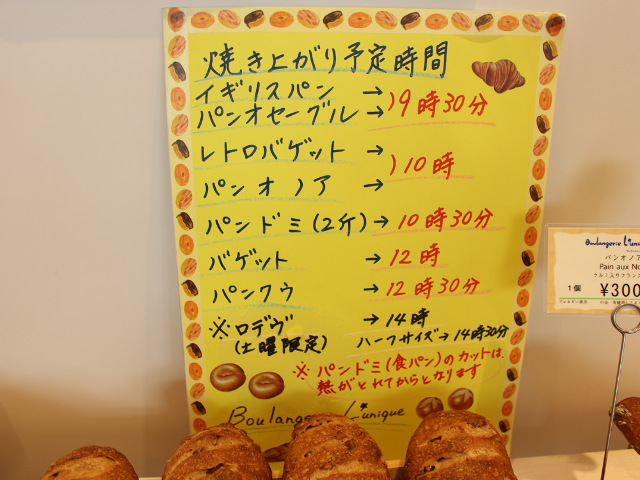 焼き上がり予定時間
イギリスパン →
パンオセーグル→ )9時30分
レトロバゲット →
)10時
パンオノア →
パンドミ(2斤)→ 10時30分
バゲット → 12時
パンクウ → 12時30分
※ロデヴ →14時
(土曜限定) ハーフサイズ→14時30分
※パンドミ(食パン)のカットは、
熱がとれてからとなります
Boulangerie L'unique
Boulangerie L'uni
パンオノア
Pain aux No
クルミ入りフランス
1個 ¥300